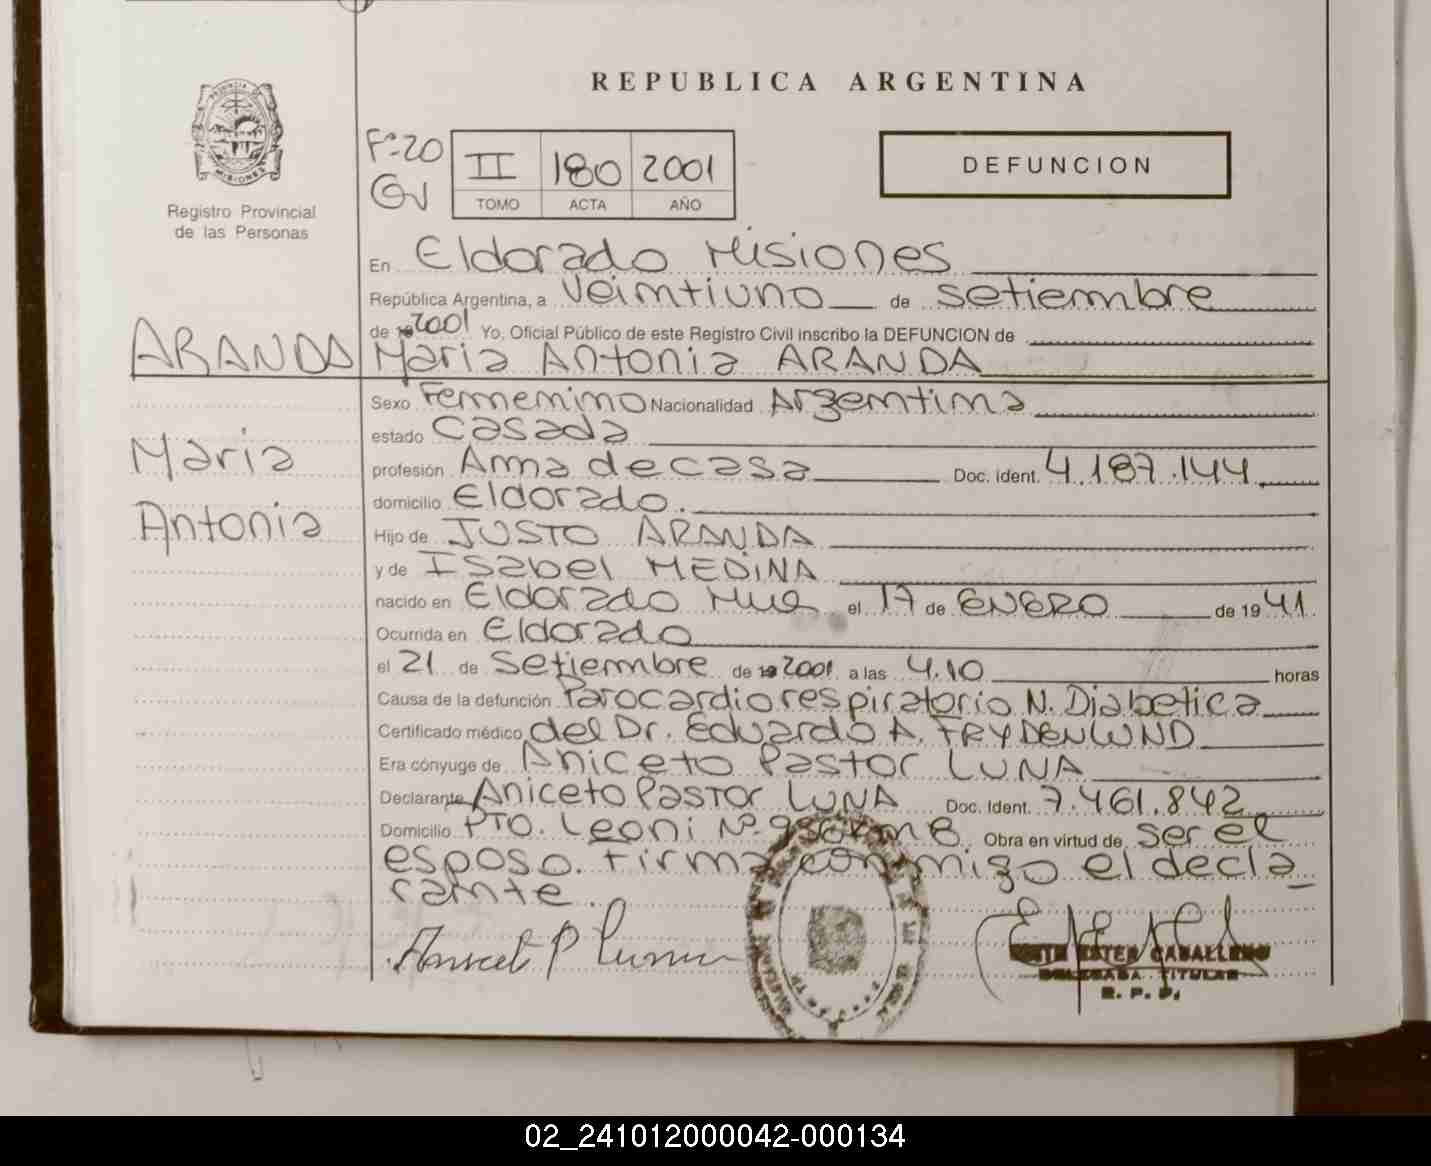 REPUBLICA ARGENTINA
Fº 20
II 180 2001
TOMO ACTA AÑO
DEFUNCION
PROVINCIA DE MISIONES
Registro Provincial
de las Personas
En Eldorado Misiones
República Argentina, a Veintiuno de setiembre
de 2001 Yo, Oficial Público de este Registro Civil inscribo la DEFUNCION de
ARANDA
Maria Antonia ARANDA
Sexo Femenino Nacionalidad Argentina
estado Casada
Maria
profesión Ama de casa Doc. ident. 4.187.144
domicilio Eldorado.
Antonia
Hijo de JUSTO ARANDA
y de Isabel MEDINA
nacido en Eldorado el 17 de ENERO de 1941.
Ocurrida en Eldorado
el 21 de Setiembre de 2001 a las 4.10 horas
Causa de la defunción Parocardiorespiratorio N. Diabetica
Certificado médico del Dr. Eduardo A. FRYDENLUND
Era cónyuge de Aniceto Pastor LUNA
Declarante Aniceto Pastor LUNA Doc. Ident. 7.461.842
Domicilio PTO. Leoni Nº 980 Km 8 Obra en virtud de ser el
esposo. Firma conmigo el decla
rante.
P Luna
ESTER CABALLERO
DELEGADA TITULAR
R. P. P.
02_241012000042-000134